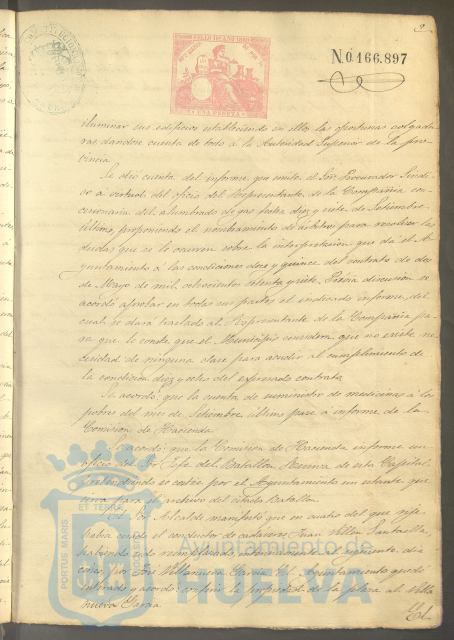 2
SELLO 11º AÑO 1880
UNA PESETA
N.0.166.897
iluminar sus edificios estableciendo en ellos las oportunas colgadu
ras dandose cuenta de todo á la Autoridad Superior de la pro
vincia.
Se dió cuenta del informe que emite el Sor. Procurador Sindi
co á virtud del oficio del Representante de la Compañia con
cesionaria del alumbrado de gas fecha diez y siete de Setiembre
último, proponiendo el nombramiento de árbitros para resolver las
dudas que se le ocurren sobre la interpretacion que dá el A
yuntamiento á las condiciones doce y quince del contrato de dos
de Mayo de mil ochocientos setenta y siete. Prévia discusion se
acordó aprobar en todas sus partes el indicado informe, del
cual se dará traslado al Representante de la Compañia pa
ra que le conste que el Municipio considera que no existe ne
cesidad de ninguna clase para acudir al cumplimiento de
la condicion diez y del expresado contrato.
Se acordó: que la cuenta de suministro de medicinas á los
pobres del mes de Setiembre último pase á informe de la
Comision de Hacienda.
Se acordó: que la Comision de Hacienda informe un
oficio del Sr. Jefe del Batallon Reserva de esta Capital
pretendiendo se costée por el Ayuntamiento un estante que
sirva para el archivo del citado Batallon.
El Sor. Alcalde manifestó que en cuatro del que rije
habia cesado el conductor de cadáveres Juan
habiendo sido reemplazado en el siguiente dia
cinco por José Villanueva Garcia. El Ayuntamiento quedó
enterado y acordó: conferir la propiedad de la plaza al Villa
nueva Garcia.
El
PORTUS MARIS
ET TERRÆ
CUSTODIA
Ayuntamiento de
HUELVA